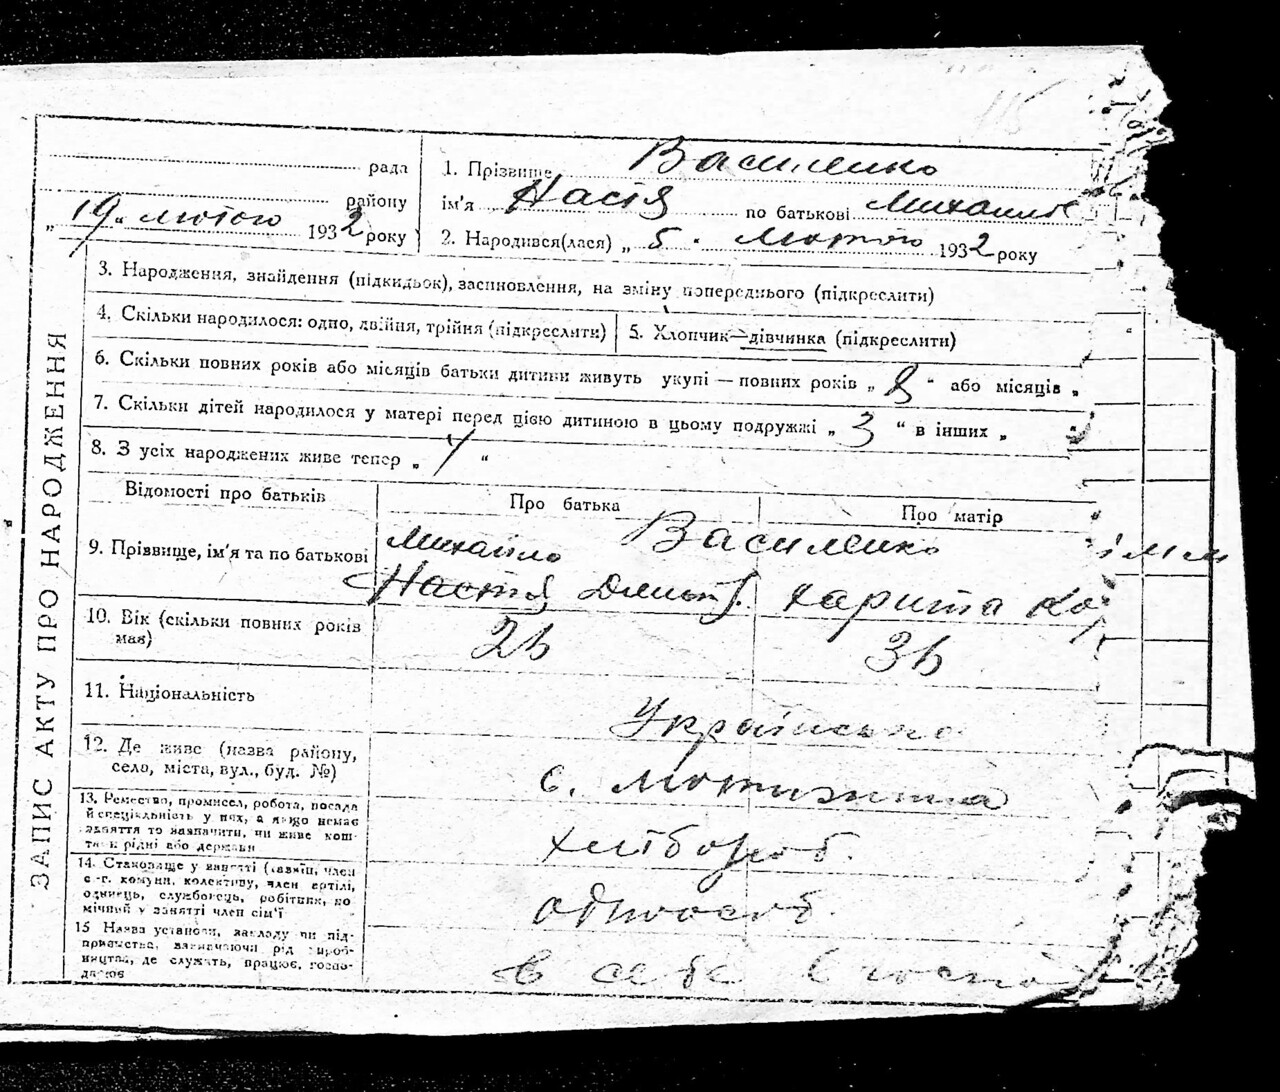 115
рада
району
„19“ лютого 1932 року
1. Прізвище Василенко
ім'я Настя по батькові Михайлів
2. Народився(лася) „5“ лютого 1932 року
ЗАПИС АКТУ ПРО НАРОДЖЕННЯ
3. Народження, знайдення (підкидьок), засиновлення, на зміну попереднього (підкреслити)
4. Скільки народилося: одно, двійня, трійня (підкреслити) 5. Хлопчик—дівчинка (підкреслити)
6. Скільки повних років або місяців батьки дитини живуть укупі — повних років „8“ або місяців „
7. Скільки дітей народилося у матері перед цією дитиною в цьому подружжі „3“ в інших „
8. З усіх народжених живе тепер „4“
Відомості про батьків Про батька Про матір
9. Прізвище, ім'я та по батькові Михайло Василенко
Настя Дмитр. Харита
10. Вік (скільки повних років має) 26 36
11. Національність Українська
12. Де живе (назва району,
село, міста, вул., буд. №) с. Мотижина
13. Ремество, промисел, робота, посада
й спеціяльність у них, а якщо немає
заняття то зазначити, чи живе кош-
том рідні або держави хлібороб.
14. Становище у занятті (хазяїн, член
с.-г. комуни, колективу, член артілі,
одинець, службовець, робітник, по
мічний у занятті член сім'ї одноосіб.
15 Назва установи, закладу чи під-
приємства, зазначаючи рід вироб-
ництва, де служать, працює, госпо-
дарює в себе в госпо